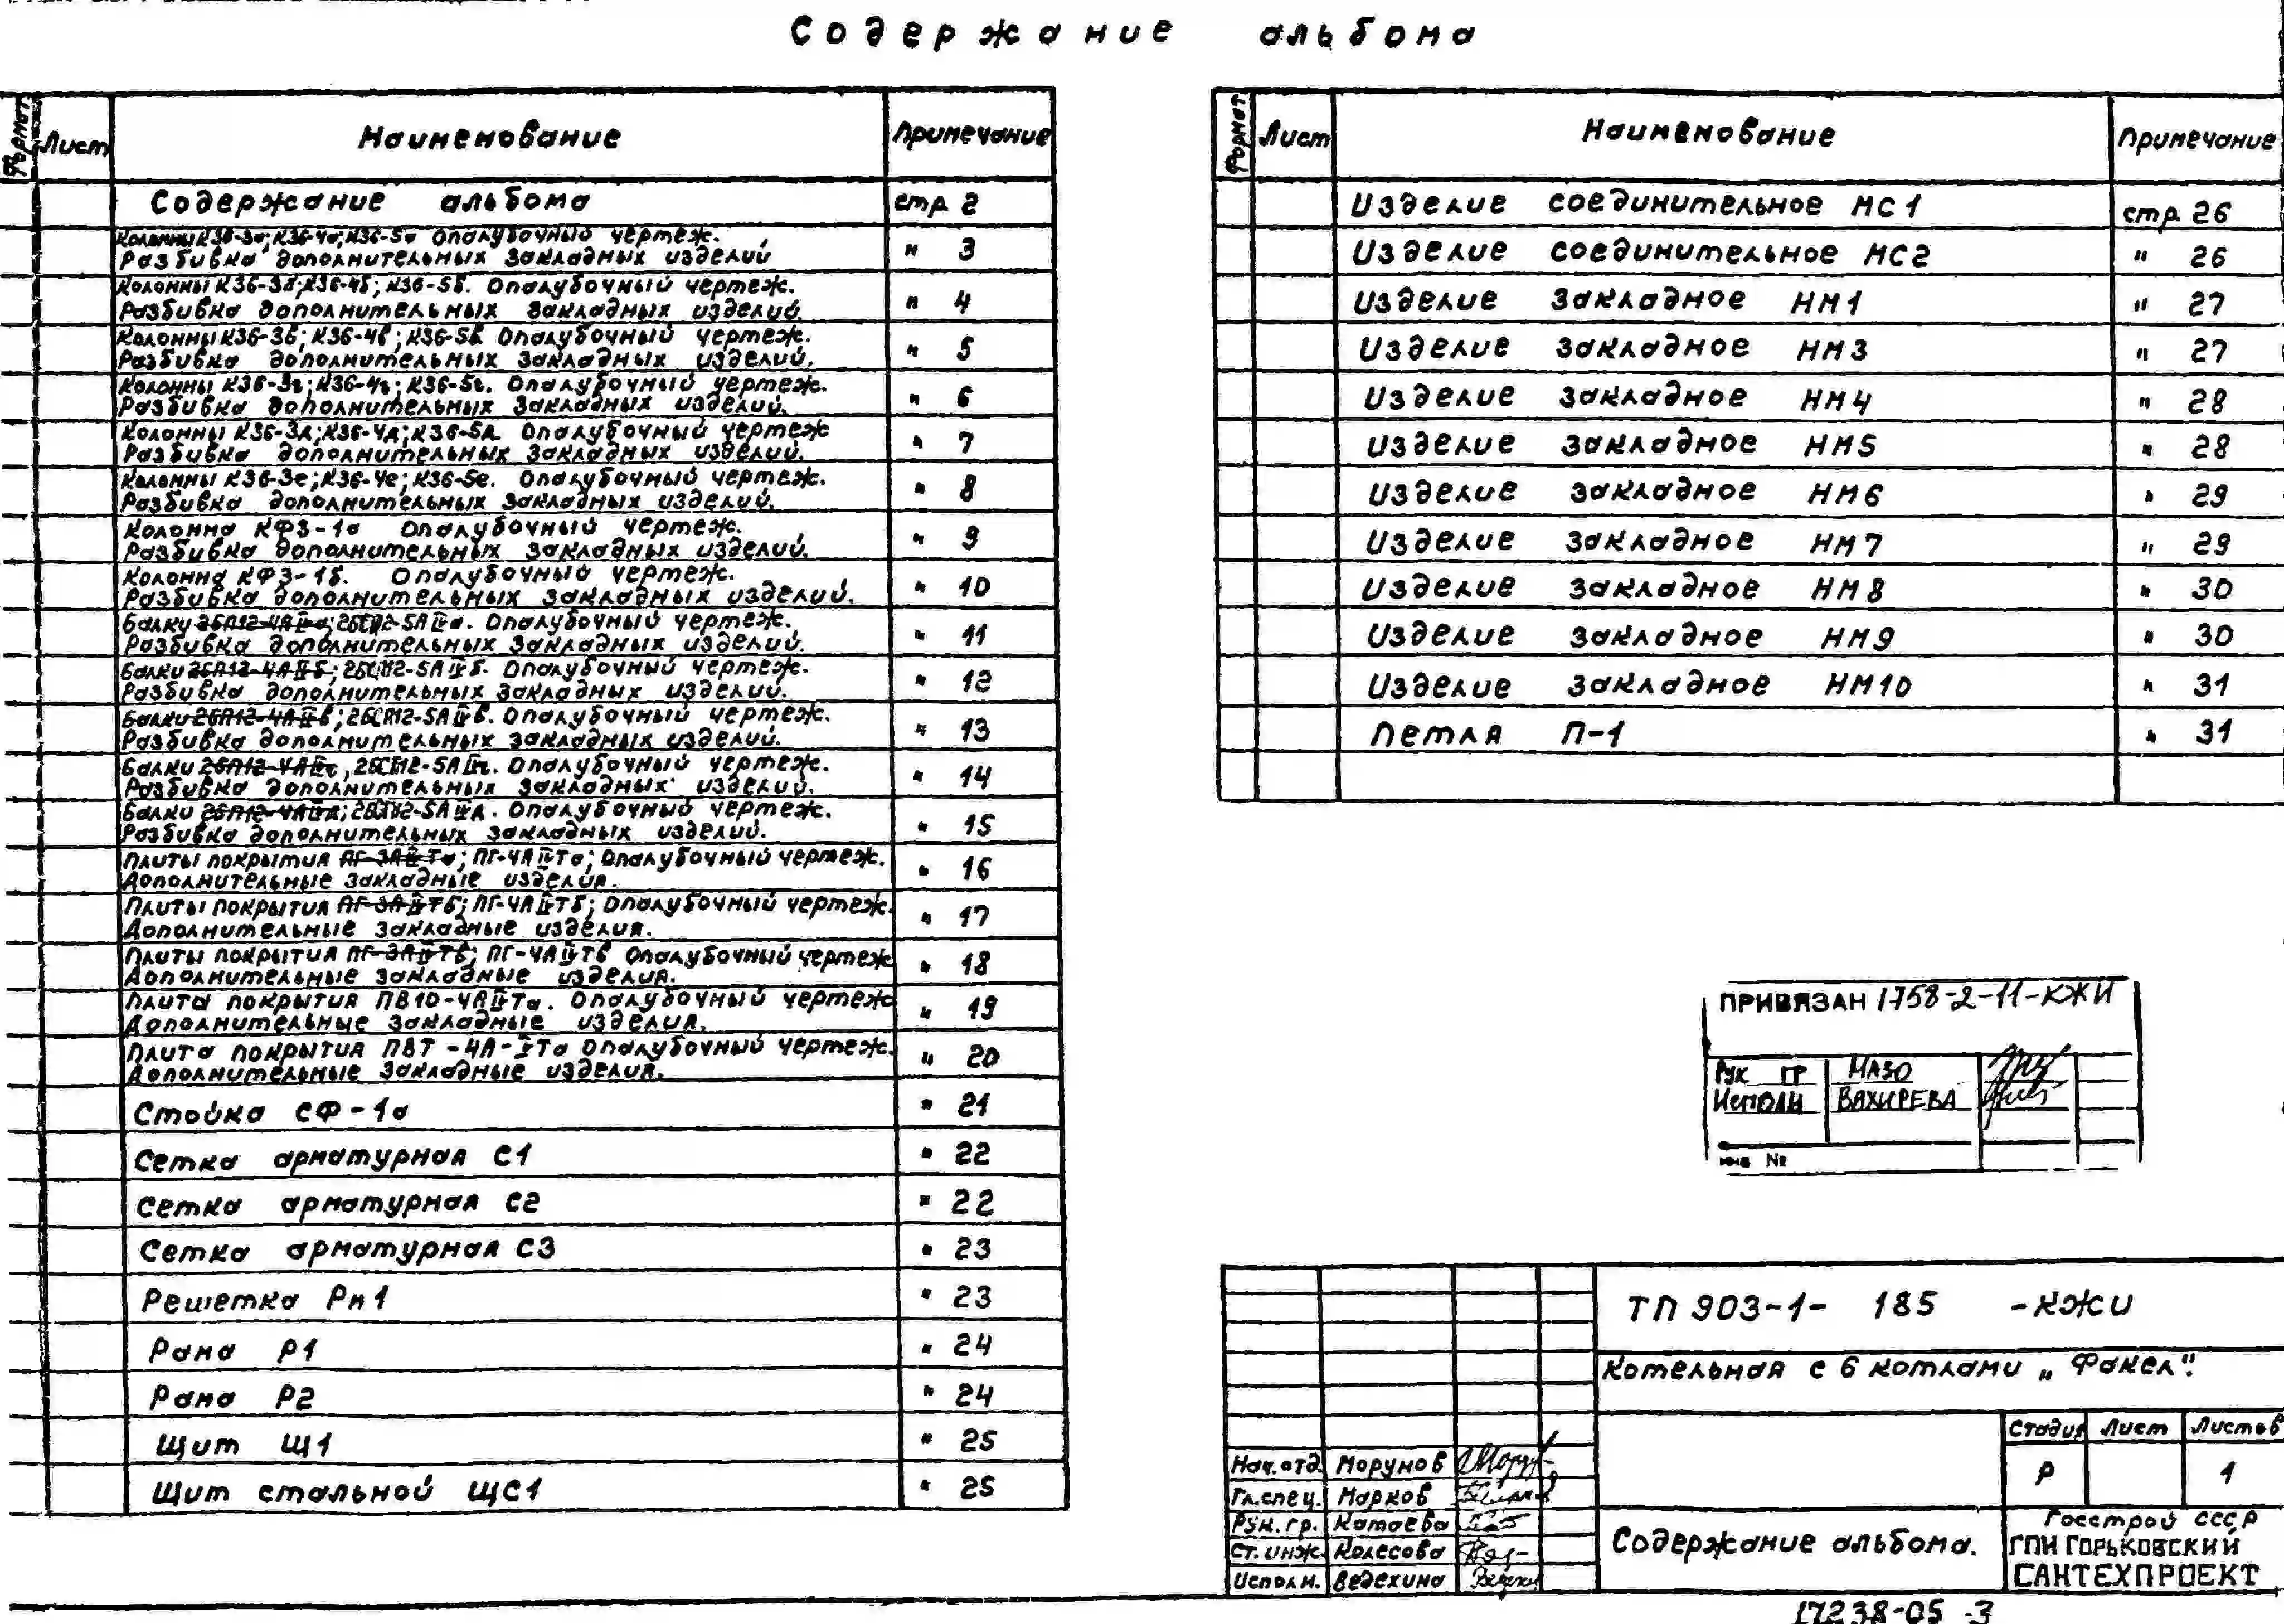 Содержание альбома
Формат Лист Наименование Примечание
Содержание альбома стр. 2
Колонны К36-3а; К36-4а; К36-5а Опалубочный чертеж.
Разбивка дополнительных закладных изделий " 3
Колонны К36-3б; К36-4б; К36-5б. Опалубочный чертеж.
Разбивка дополнительных закладных изделий. " 4
Колонны К36-3в; К36-4в; К36-5в. Опалубочный чертеж.
Разбивка дополнительных закладных изделий. " 5
Колонны К36-3г; К36-4г; К36-5г. Опалубочный чертеж.
Разбивка дополнительных закладных изделий. " 6
Колонны К36-3д; К36-4д; К36-5д. Опалубочный чертеж
Разбивка дополнительных закладных изделий. " 7
Колонны К36-3е; К36-4е; К36-5е. Опалубочный чертеж.
Разбивка дополнительных закладных изделий. " 8
Колонна КФ3-1а Опалубочный чертеж.
Разбивка дополнительных закладных изделий. " 9
Колонна КФ3-1б. Опалубочный чертеж.
Разбивка дополнительных закладных изделий. " 10
Балки Опалубочный чертеж.
Разбивка дополнительных закладных изделий. " 11
Балки Опалубочный чертеж.
Разбивка дополнительных закладных изделий. " 12
Балки Опалубочный чертеж.
Разбивка дополнительных закладных изделий. " 13
Балки Опалубочный чертеж.
Разбивка дополнительных закладных изделий. " 14
Балки Опалубочный чертеж.
Разбивка дополнительных закладных изделий. " 15
Плиты покрытия ПГ-4АIVТа; Опалубочный чертеж.
Дополнительные закладные изделия. " 16
Плиты покрытия ПГ-4АIVТб; Опалубочный чертеж.
Дополнительные закладные изделия. " 17
Плиты покрытия ПГ-4АIVТв Опалубочный чертеж
Дополнительные закладные изделия. " 18
Плита покрытия ПВ10-4АIVТа. Опалубочный чертеж
Дополнительные закладные изделия. " 19
Плита покрытия Опалубочный чертеж.
Дополнительные закладные изделия. " 20
Стойка СФ-1а " 21
Сетка арматурная С1 " 22
Сетка арматурная С2 " 22
Сетка арматурная С3 " 23
Решетка Рн1 " 23
Рама Р1 " 24
Рама Р2 " 24
Щит Щ1 " 25
Щит стальной ЩС1 " 25
Формат Лист Наименование Примечание
Изделие соединительное МС1 стр. 26
Изделие соединительное МС2 " 26
Изделие закладное НМ1 " 27
Изделие закладное НМ3 " 27
Изделие закладное НМ4 " 28
Изделие закладное НМ5 " 28
Изделие закладное НМ6 " 29
Изделие закладное НМ7 " 29
Изделие закладное НМ8 " 30
Изделие закладное НМ9 " 30
Изделие закладное НМ10 " 31
Петля П-1 " 31
ПРИВЯЗАН 1758-2-11-КЖИ
Рук ГР МАЗО
Исполн ВАХИРЕВА
инв №
ТП 903-1- 185 -КЖИ
Котельная с 6 котлами „Факел".
Стадия Лист Листов
Р 1
Нач. отд. Морунов
Гл. спец. Марков
Рук. гр. Катаева
Ст. инж. Колесова
Исполн. Ведехина
Содержание альбома.
Госстрой СССР
ГПИ ГОРЬКОВСКИЙ
САНТЕХПРОЕКТ
17238-05 3